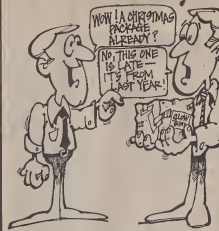 WOW! A CHRISTMAS
PACKAGE
ALREADY?
NO, THIS ONE
IS LATE—
IT'S FROM
LAST YEAR!
SLOW
BOAT